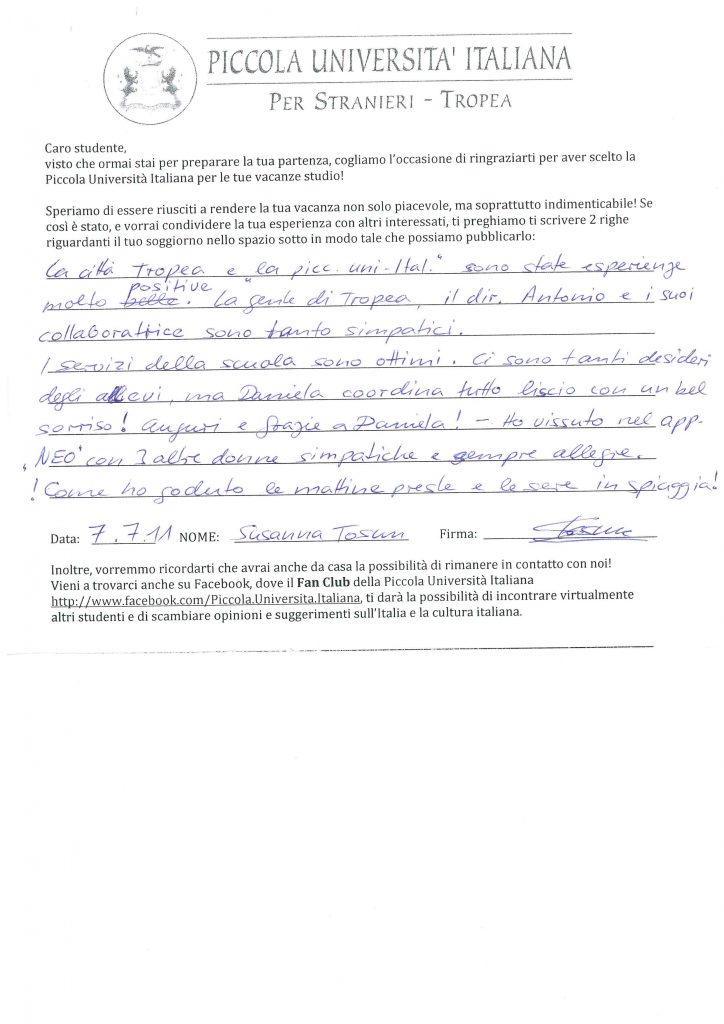 PICCOLA UNIVERSITA' ITALIANA
PER STRANIERI - TROPEA
Caro studente,
visto che ormai stai per preparare la tua partenza, cogliamo l'occasione di ringraziarti per aver scelto la
Piccola Università Italiana per le tue vacanze studio!
Speriamo di essere riusciti a rendere la tua vacanza non solo piacevole, ma soprattutto indimenticabile! Se
così è stato, e vorrai condividere la tua esperienza con altri interessati, ti preghiamo ti scrivere 2 righe
riguardanti il tuo soggiorno nello spazio sotto in modo tale che possiamo pubblicarlo:
La città Tropea e "la picc. uni-Ital." sono state esperienze
positive
molto belle. La gente di Tropea, il dir. Antonio e i suoi
collaboratrice sono tanto simpatici.
I servizi della scuola sono ottimi. Ci sono tanti desideri
degli allievi, ma Daniela coordina tutto liscio con un bel
sorriso! Auguri e grazie a Daniela! – Ho vissuto nel app.
„NEO" con 3 altre donne simpatiche e sempre allegre.
! Come ho goduto le mattine preste e le sere in spiaggia!
Data: 7.7.11 NOME: Susanna Tosun Firma: Tosun
Inoltre, vorremmo ricordarti che avrai anche da casa la possibilità di rimanere in contatto con noi!
Vieni a trovarci anche su Facebook, dove il Fan Club della Piccola Università Italiana
http://www.facebook.com/Piccola.Universita.Italiana, ti darà la possibilità di incontrare virtualmente
altri studenti e di scambiare opinioni e suggerimenti sull'Italia e la cultura italiana.